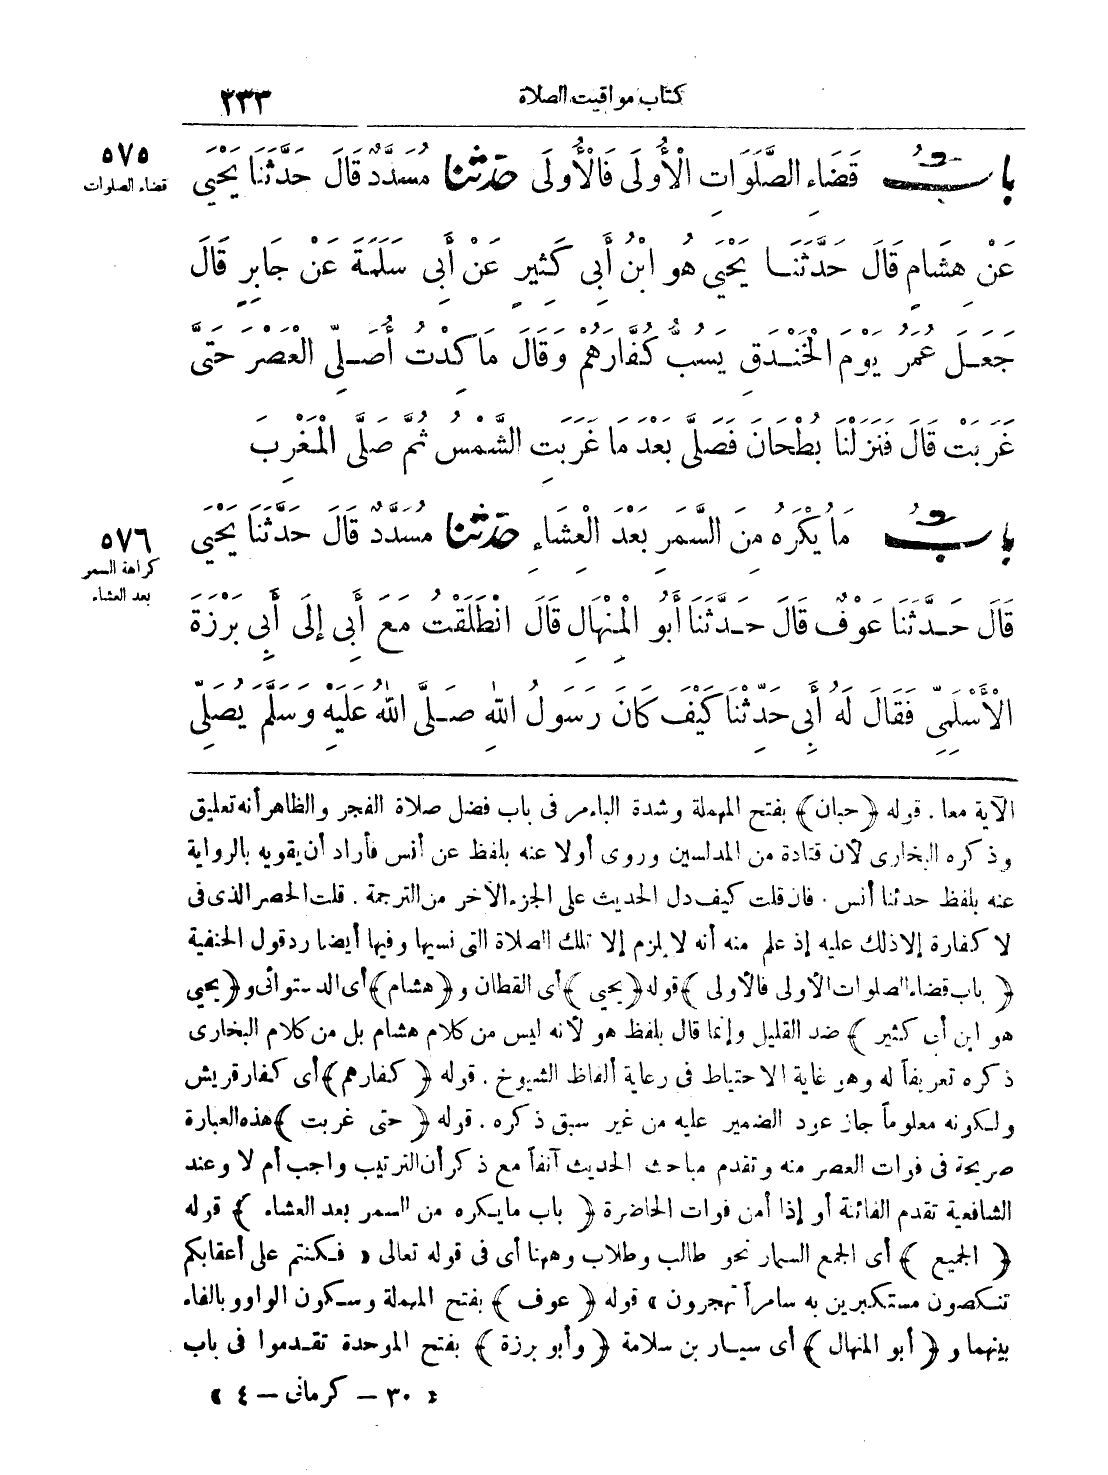 كتاب مواقيت الصلاة
٢٣٣
باب قَضَاءِ الصَّلَوَاتِ الْأُولَى فَالْأُولَى حَدَّثَنَا مُسَدَّدٌ قَالَ حَدَّثَنَا يَحْيَى
٥٧٥
قضاء الصلوات
عَنْ هِشَامٍ قَالَ حَدَّثَنَا يَحْيَى هُوَ ابْنُ أَبِي كَثِيرٍ عَنْ أَبِي سَلَمَةَ عَنْ جَابِرٍ قَالَ
جَعَلَ عُمَرُ يَوْمَ الْخَنْدَقِ يَسُبُّ كُفَّارَهُمْ وَقَالَ مَا كِدْتُ أُصَلِّي الْعَصْرَ حَتَّى
غَرَبَتْ قَالَ فَنَزَلْنَا بُطْحَانَ فَصَلَّى بَعْدَ مَا غَرَبَتِ الشَّمْسُ ثُمَّ صَلَّى الْمَغْرِبَ
باب مَا يُكْرَهُ مِنَ السَّمَرِ بَعْدَ الْعِشَاءِ حَدَّثَنَا مُسَدَّدٌ قَالَ حَدَّثَنَا يَحْيَى
٥٧٦
كراهة السمر
بعد العشاء
قَالَ حَدَّثَنَا عَوْفٌ قَالَ حَدَّثَنَا أَبُو الْمِنْهَالِ قَالَ انْطَلَقْتُ مَعَ أَبِي إِلَى أَبِي بَرْزَةَ
الْأَسْلَمِيِّ فَقَالَ لَهُ أَبِي حَدِّثْنَا كَيْفَ كَانَ رَسُولُ اللهِ صَلَّى اللهُ عَلَيْهِ وَسَلَّمَ يُصَلِّي
الآية معا. قوله ﴿حبان﴾ بفتح المهملة وشدة الباء مر فى باب فضل صلاة الفجر والظاهر أنه تعليق
وذكره البخارى لأن قتادة من المدلسين وروى أولا عنه بلفظ عن أنس فأراد أن يقويه بالرواية
عنه بلفظ حدثنا أنس. فان قلت كيف دل الحديث على الجزء الآخر من الترجمة. قلت الحصر الذى فى
لا كفارة إلا ذلك عليه إذ علم منه أنه لا يلزم إلا تلك الصلاة التى نسيها وفيها أيضا رد قول الحنفية
﴿باب قضاء الصلوات الأولى فالأولى﴾ قوله ﴿يحيى﴾ أى القطان و﴿هشام﴾ أى الدستوائى و﴿يحيى
هو ابن أبى كثير﴾ ضد القليل وإنما قال بلفظ هو لأنه ليس من كلام هشام بل من كلام البخارى
ذكره تعريفاً له وهو غاية الاحتياط فى رعاية ألفاظ الشيوخ. قوله ﴿كفارهم﴾ أى كفار قريش
ولكونه معلوماً جاز عود الضمير عليه من غير سبق ذكره. قوله ﴿حتى غربت﴾ هذه العبارة
صريحة فى فوات العصر منه وتقدم مباحث الحديث آنفاً مع ذكر أن الترتيب واجب أم لا وعند
الشافعية تقدم الفائتة أو إذا أمن فوات الحاضرة ﴿باب ما يكره من السمر بعد العشاء﴾ قوله
﴿الجميع﴾ أى الجمع السمار نحو طالب وطلاب وههنا أى فى قوله تعالى «فكنتم على أعقابكم
تنكصون مستكبرين به سامراً تهجرون» قوله ﴿عوف﴾ بفتح المهملة وسكون الواو وبالفاء
بينهما و﴿أبو المنهال﴾ أى سيار بن سلامة ﴿وأبو برزة﴾ بفتح الموحدة تقدموا فى باب
«٣٠ – كرمانى – ٤»